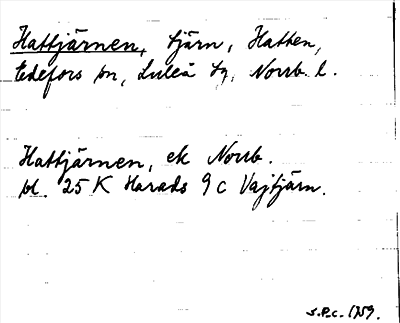 Hattjärnen, tjärn, Hatten,
Edefors sn, Luleå tg, Norrb. l.
Hattjärnen, ek Norrb.
bl. 25 K Harads 9 c Vajtjärn.
S.P.c. 1759.